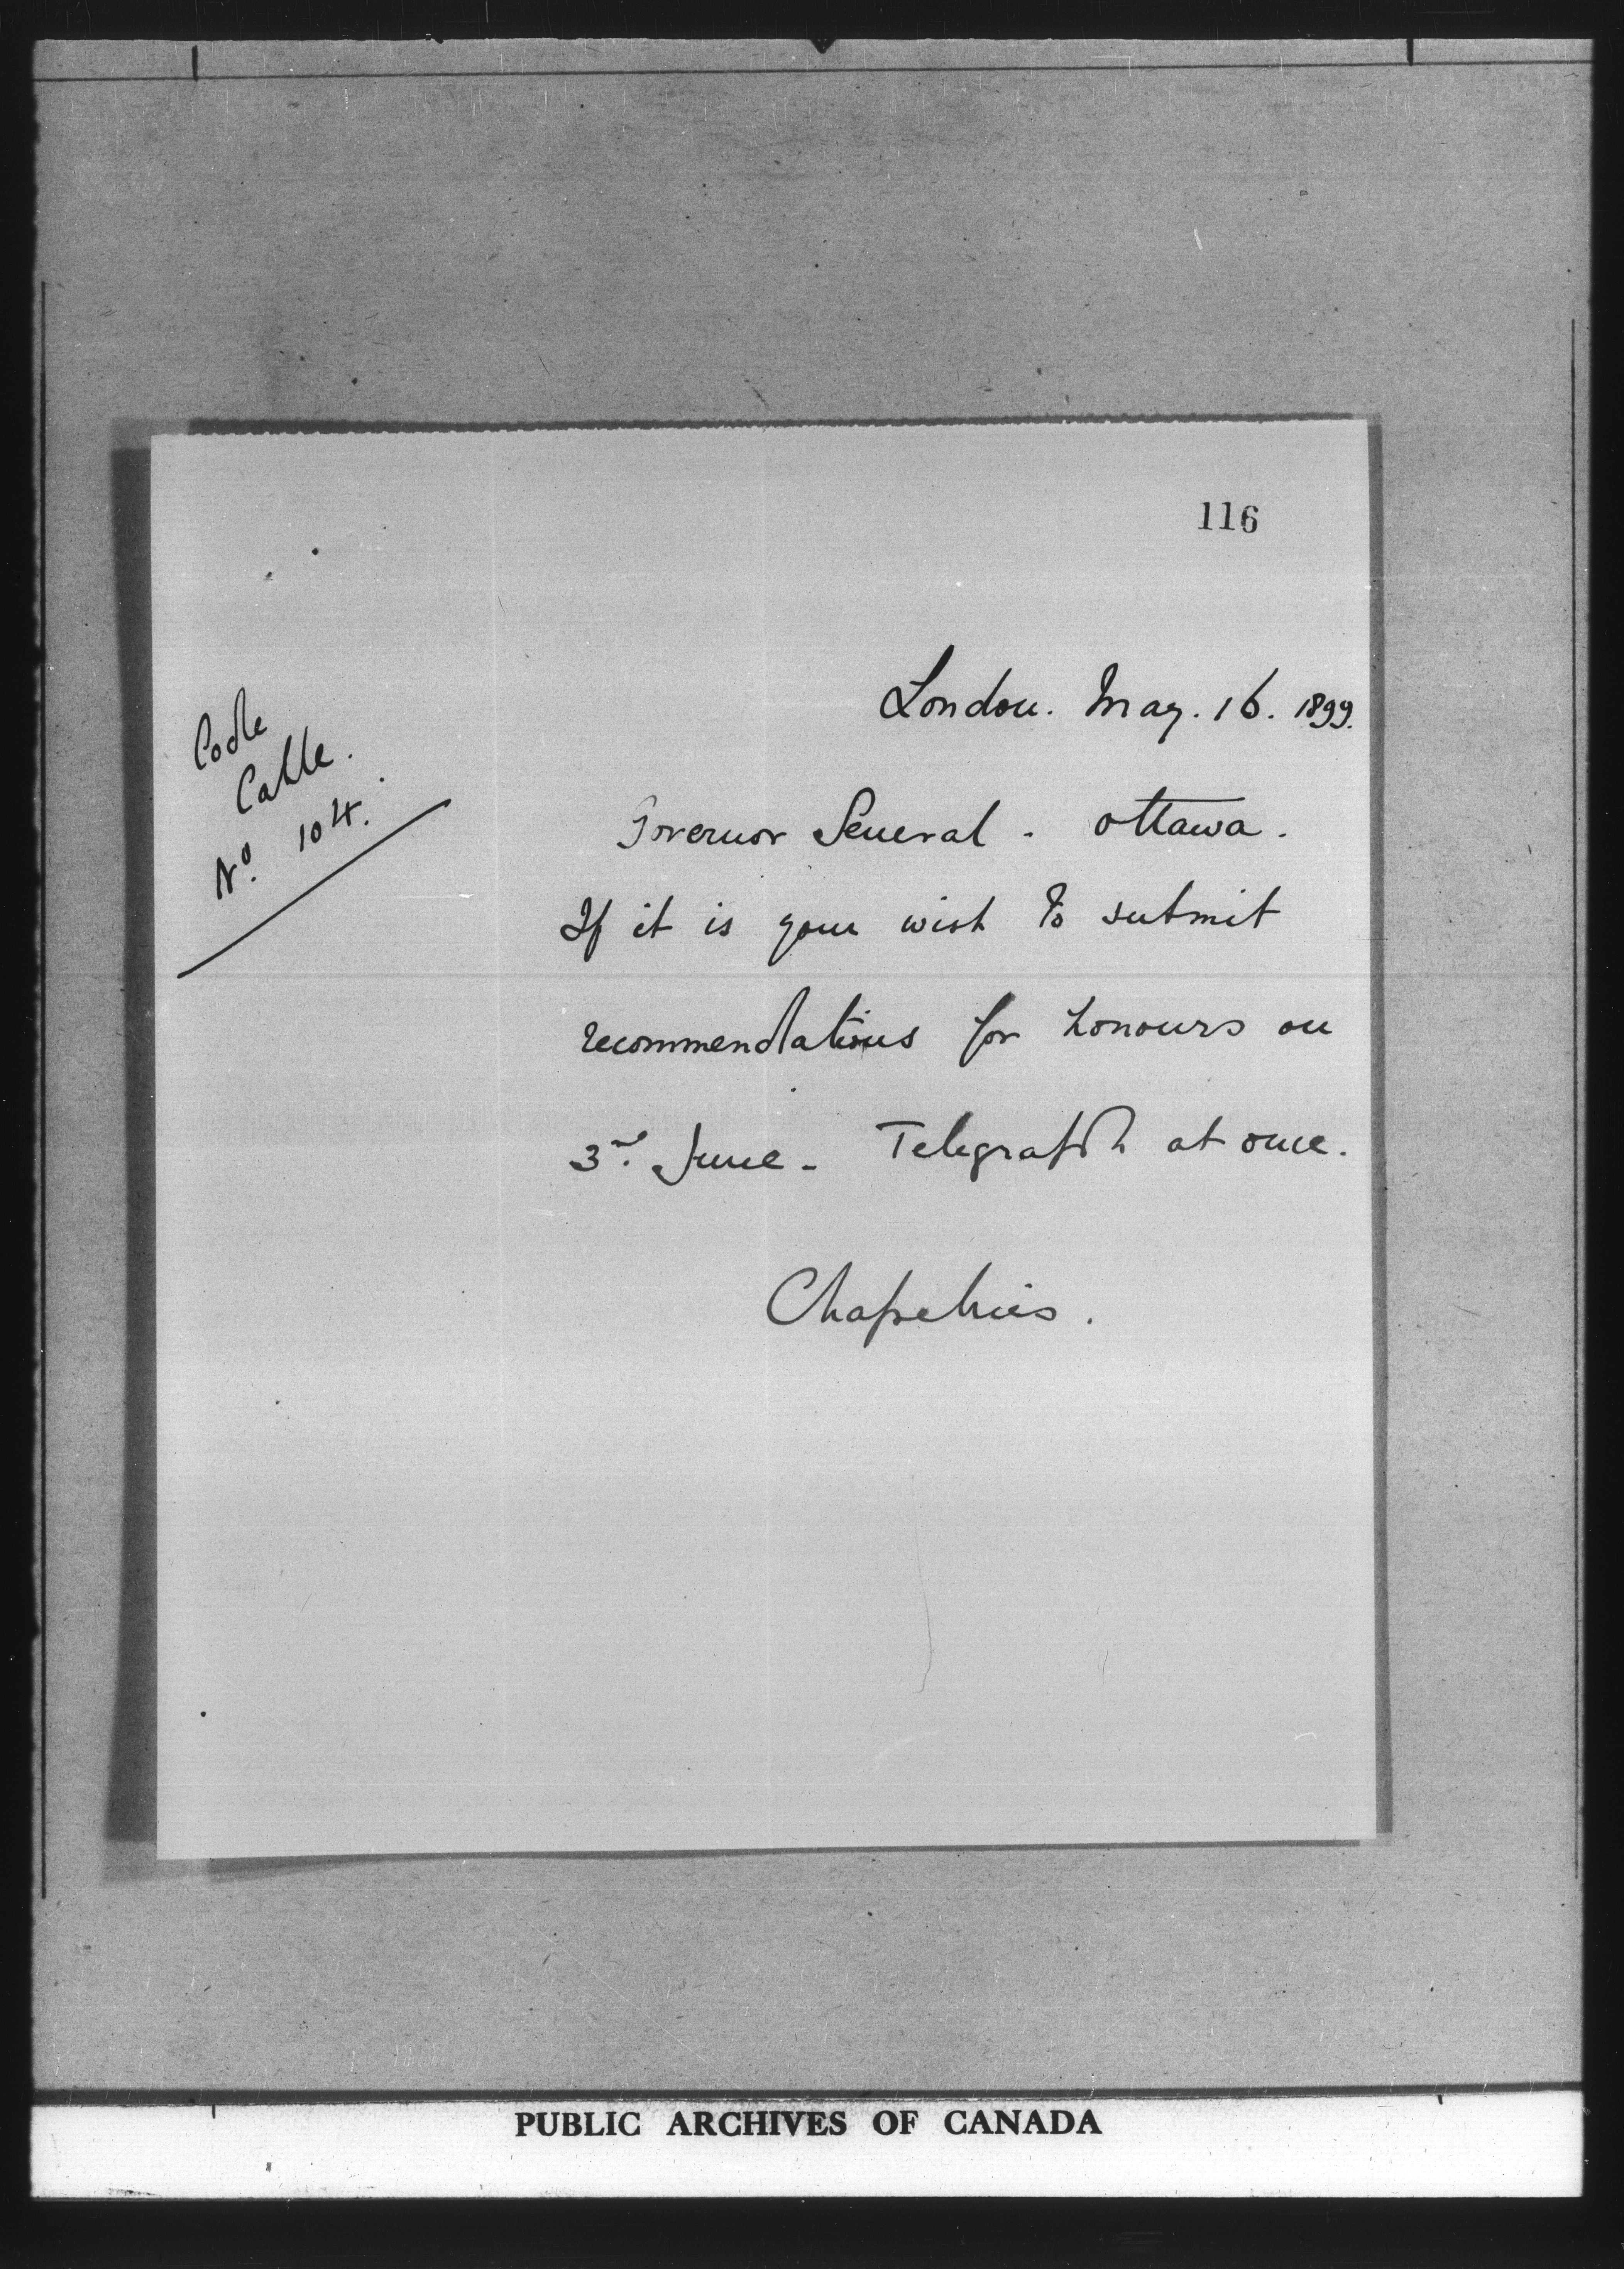 116
London. May. 16. 1899.
Code
Cable.
No. 104.
Governor General - Ottawa.
If it is your wish to submit
recommendations for honours on
3rd. June - Telegraph at once.
PUBLIC ARCHIVES OF CANADA